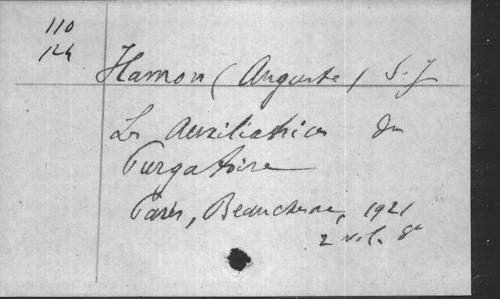 110
124
Hamon (Auguste) S.J
Les Auxiliatrices du
Purgatoire
Paris, Beauchesne, 1921
2 vol. 8°